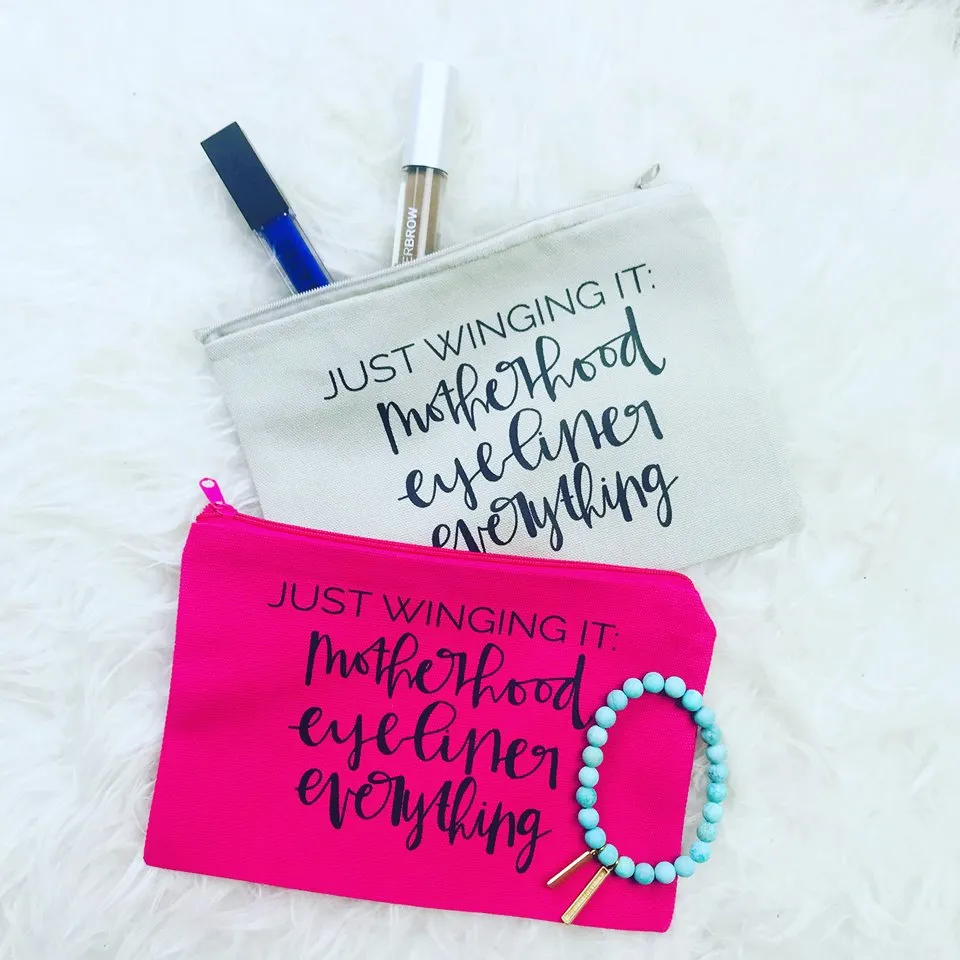 ERBROW
JUST WINGING IT:
motherhood
eyeliner
everything
JUST WINGING IT:
motherhood
eyeliner
everything